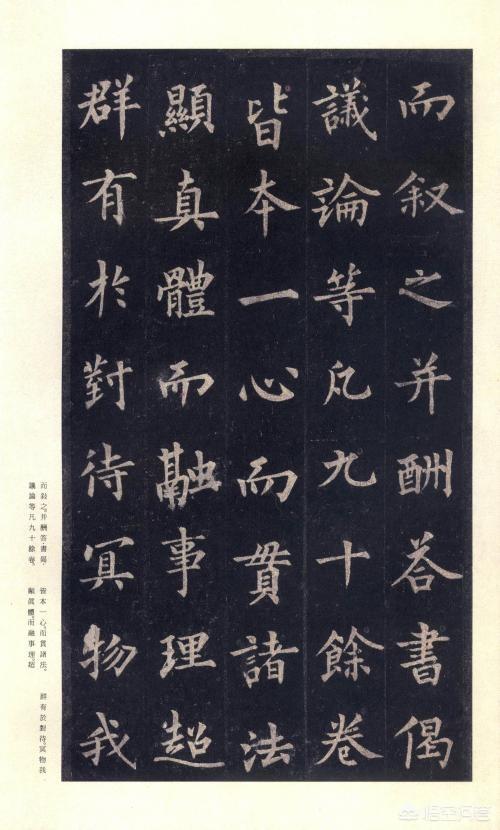 而叙之并酬荅書偈
議論等凡九十餘卷
皆本一心而貫諸法
顯真體而融事理超
群有於對待冥物我
而敍之。并酬答・書偈・
議論等凡九十餘卷。
皆本一心。而貫諸法。
顯眞體。而融事理超
群有於對待。冥物我
悟空问答